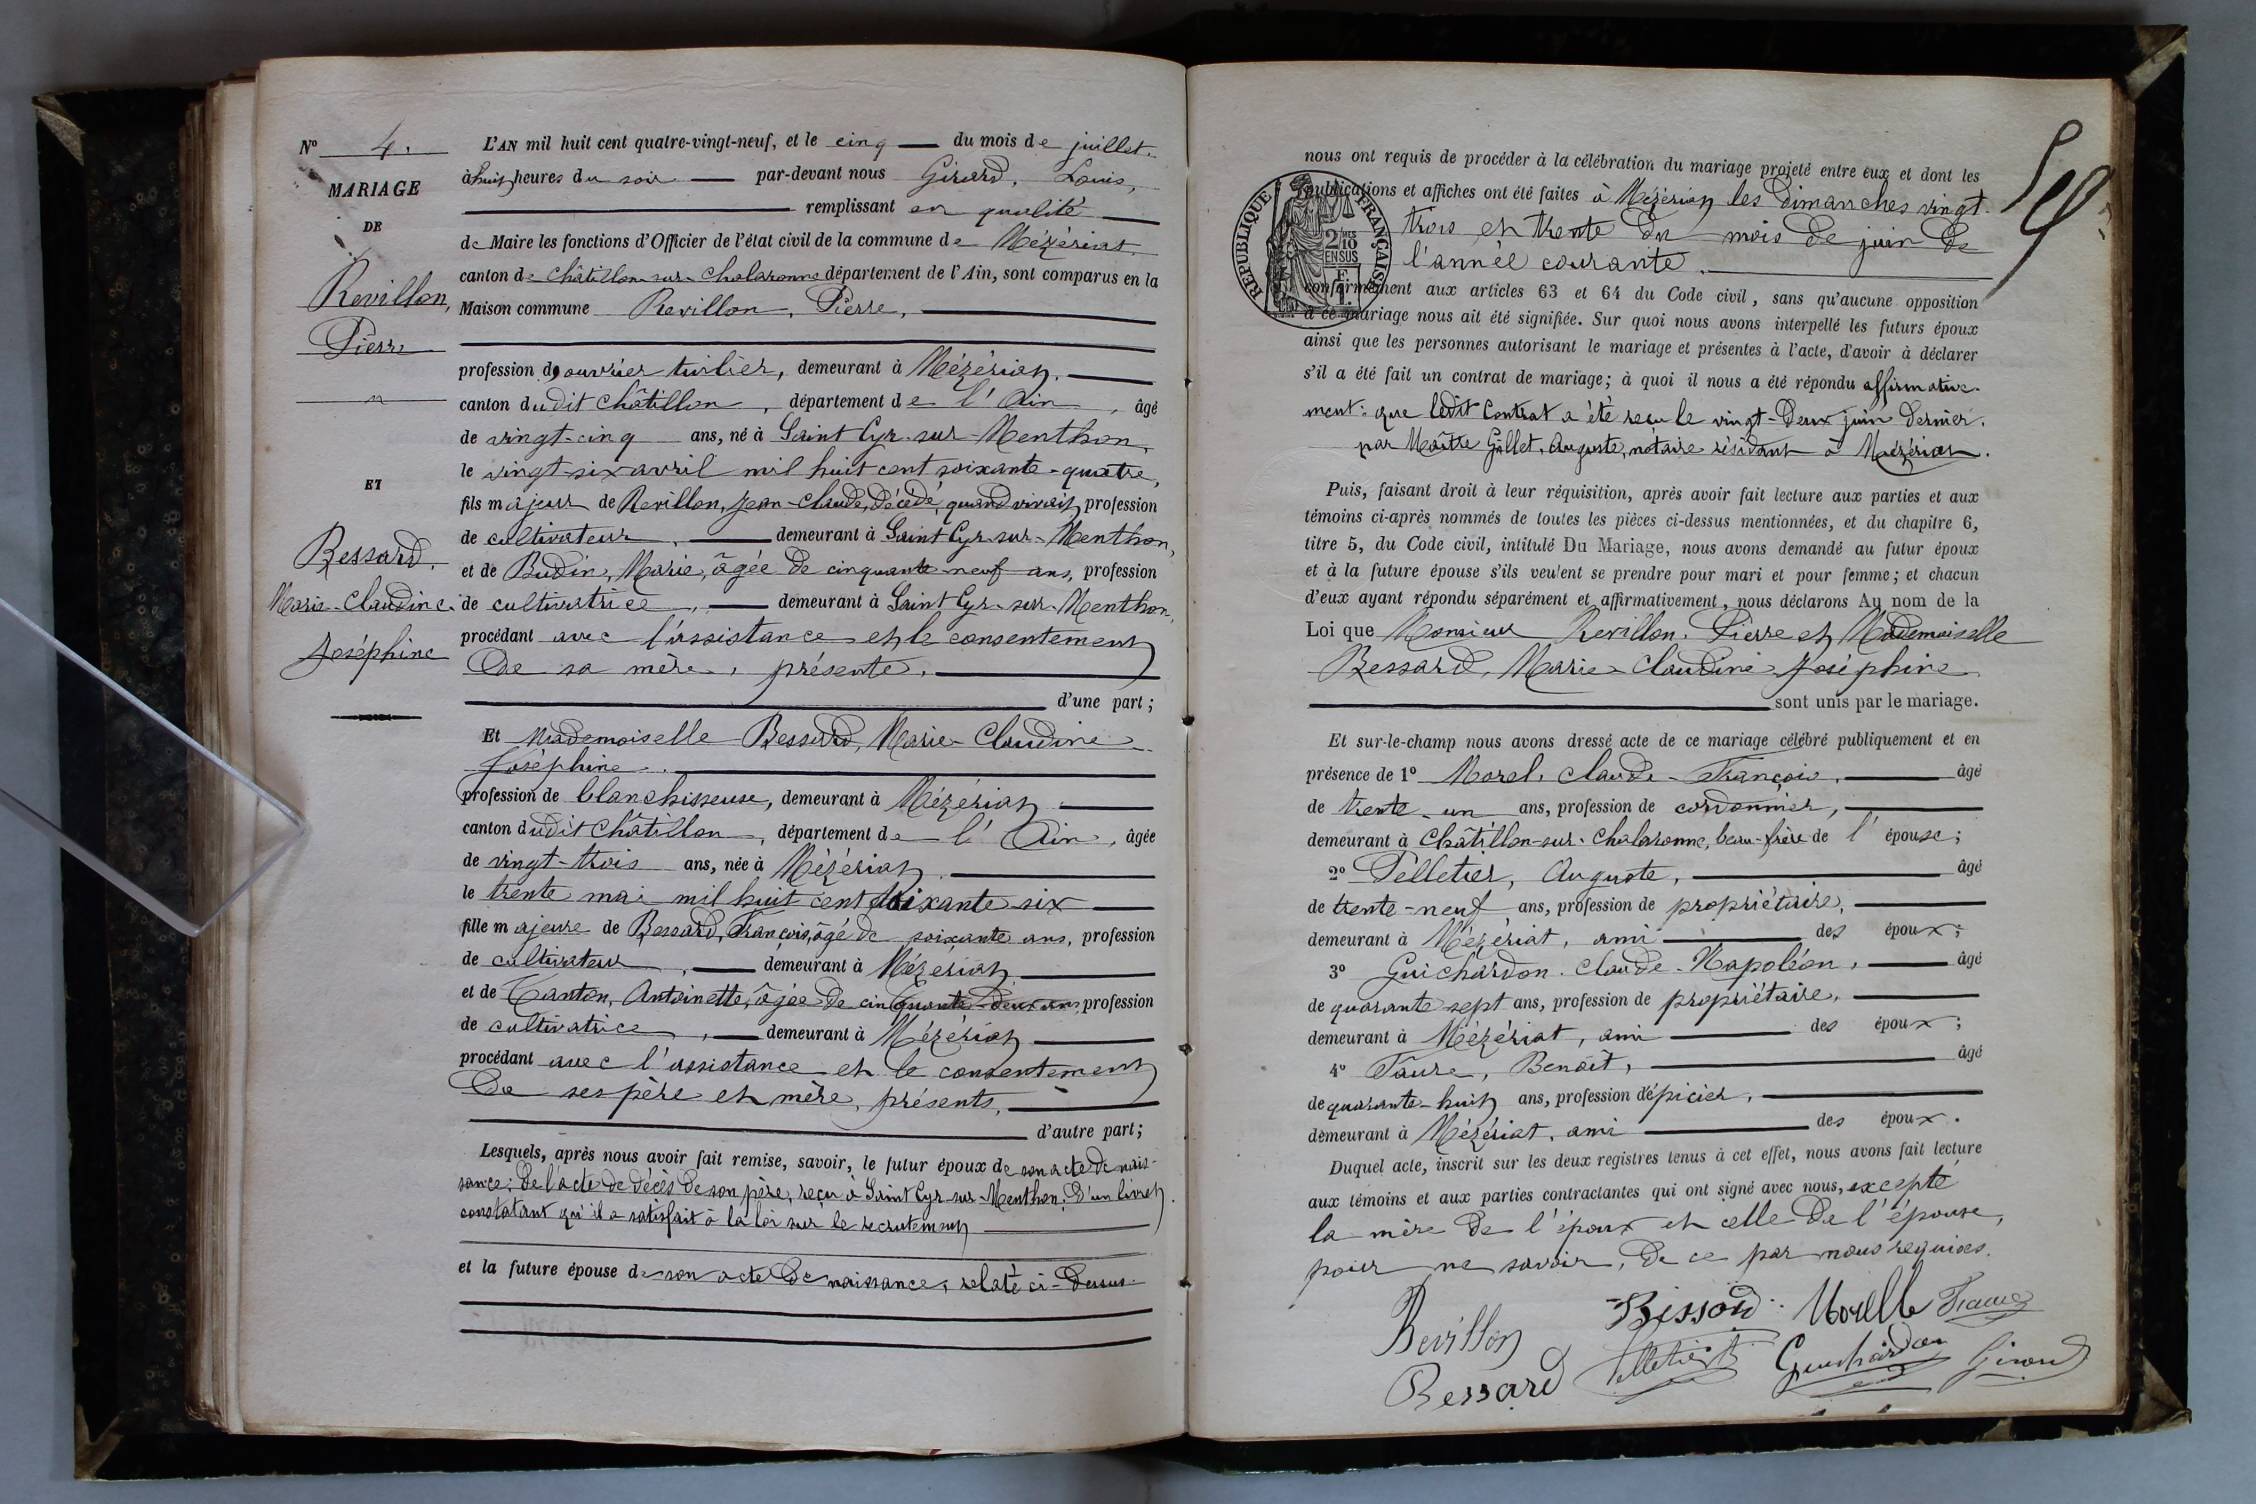 N° 4.
MARIAGE
DE
Revillon,
Pierre
ET
Bessard,
Marie-Claudine-
Joséphine
L'AN mil huit cent quatre-vingt-neuf, et le cinq du mois de juillet
à huit heures du soir par-devant nous Girard, Louis,
remplissant en qualité
de Maire les fonctions d'Officier de l'état civil de la commune de Mézériat,
canton de Châtillon-sur-Chalaronne département de l'Ain, sont comparus en la
Maison commune Revillon, Pierre,
profession d'ouvrier tuilier, demeurant à Mézériat,
canton dudit Châtillon, département de l'Ain, âgé
de vingt-cinq ans, né à Saint Cyr-sur-Menthon,
le vingt-six avril mil huit cent soixante-quatre,
fils majeur de Revillon, Jean-Claude, décédé, quand vivait, profession
de cultivateur, demeurant à Saint Cyr-sur-Menthon,
et de Budin, Marie, âgée de cinquante-neuf ans, profession
de cultivatrice, demeurant à Saint Cyr-sur-Menthon,
procédant avec l'assistance et le consentement
de sa mère, présente,
d'une part;
Et Mademoiselle Bessard, Marie-Claudine-
Joséphine,
profession de blanchisseuse, demeurant à Mézériat,
canton dudit Châtillon, département de l'Ain, âgée
de vingt-trois ans, née à Mézériat,
le trente mai mil huit cent soixante-six
fille majeure de Bessard, François, âgé de soixante ans, profession
de cultivateur, demeurant à Mézériat
et de Tanton, Antoinette, âgée de cinquante-deux ans, profession
de cultivatrice, demeurant à Mézériat
procédant avec l'assistance et le consentement
de ses père et mère, présents,
d'autre part;
Lesquels, après nous avoir fait remise, savoir, le futur époux de son acte de nais-
sance; de l'acte de décès de son père, reçu à Saint Cyr-sur-Menthon; d'un livret
constatant qu'il a satisfait à la loi sur le recrutement
et la future épouse de son acte de naissance, relaté ci-dessus.
nous ont requis de procéder à la célébration du mariage projeté entre eux et dont les
publications et affiches ont été faites à Mézériat les dimanches vingt-
trois et trente du mois de juin de
l'année courante.
RÉPUBLIQUE FRANÇAISE
2/10 MES
EN SUS
conformément aux articles 63 et 64 du Code civil, sans qu'aucune opposition
à ce mariage nous ait été signifiée. Sur quoi nous avons interpellé les futurs époux
ainsi que les personnes autorisant le mariage et présentes à l'acte, d'avoir à déclarer
s'il a été fait un contrat de mariage; à quoi il nous a été répondu affirmative-
ment: que ledit contrat a été reçu le vingt-deux juin dernier.
par Maître Gallet, Auguste, notaire résidant à Mézériat.
Puis, faisant droit à leur réquisition, après avoir fait lecture aux parties et aux
témoins ci-après nommés de toutes les pièces ci-dessus mentionnées, et du chapitre 6,
titre 5, du Code civil, intitulé Du Mariage, nous avons demandé au futur époux
et à la future épouse s'ils veulent se prendre pour mari et pour femme; et chacun
d'eux ayant répondu séparément et affirmativement, nous déclarons Au nom de la
Loi que Monsieur Revillon, Pierre et Mademoiselle
Bessard, Marie-Claudine-Joséphine
sont unis par le mariage.
Et sur-le-champ nous avons dressé acte de ce mariage célébré publiquement et en
présence de 1° Morel, Claude-François, âgé
de trente-un ans, profession de cordonnier,
demeurant à Châtillon-sur-Chalaronne, beau-frère de l'épouse;
2° Pelletier, Auguste, âgé
de trente-neuf ans, profession de propriétaire,
demeurant à Mézériat, ami des époux;
3° Guichardon, Claude-Napoléon, âgé
de quarante-sept ans, profession de propriétaire,
demeurant à Mézériat, ami des époux;
4° Faure, Benoît, âgé
de quarante-huit ans, profession d'épicier,
demeurant à Mézériat, ami des époux.
Duquel acte, inscrit sur les deux registres tenus à cet effet, nous avons fait lecture
aux témoins et aux parties contractantes qui ont signé avec nous, excepté
la mère de l'époux et celle de l'épouse,
pour ne savoir, de ce par nous requises.
Revillon Bessard Morell Faure
Bessard Pelletier Guichardon Girard